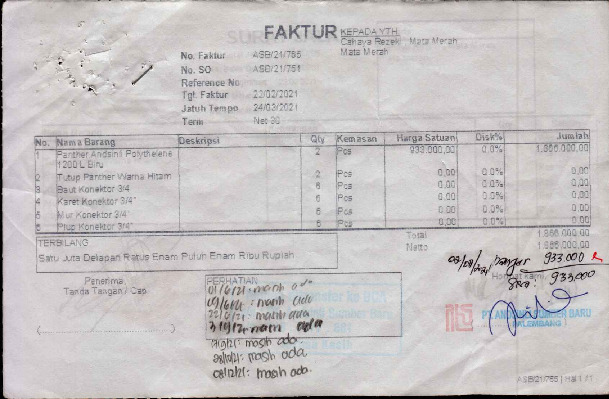 FAKTUR
KEPADA YTH.
Cahaya Rezeki, Mata Merah
Mata Merah
No. Faktur ASB/21/755
No. SO ASB/21/751
Reference No.
Tgl. Faktur 22/02/2021
Jatuh Tempo 24/03/2021
Term Net 30
No. Nama Barang Deskripsi Qty Kemasan Harga Satuan Disk% Jumlah
1 Panther Polythelene 2 Pcs 933.000,00 0.0% 1.866.000,00
1200 L Biru
2 Tutup Panther Warna Hitam 2 Pcs 0,00 0.0% 0,00
3 Baut Konektor 3/4 6 Pcs 0,00 0.0% 0,00
4 Karet Konektor 3/4" 6 Pcs 0,00 0.0% 0,00
5 Mur Konektor 3/4" 6 Pcs 0,00 0.0% 0,00
6 Plup Konektor 3/4" 6 Pcs 0,00 0.0% 0,00
Total 1.866.000,00
Netto 1.866.000,00
TERBILANG
Satu Juta Delapan Ratus Enam Puluh Enam Ribu Rupiah
933.000
Sisa: 933.000
Hormat kami,
Penerima,
Tanda Tangan / Cap
PERHATIAN
01/6/21: masih ada
masih ada
masih ada
ada
masih ada.
masih ada
08/12/21: masih ada.
SUMBER BARU
PALEMBANG
ASB/21/755 | Hal 1 / 1